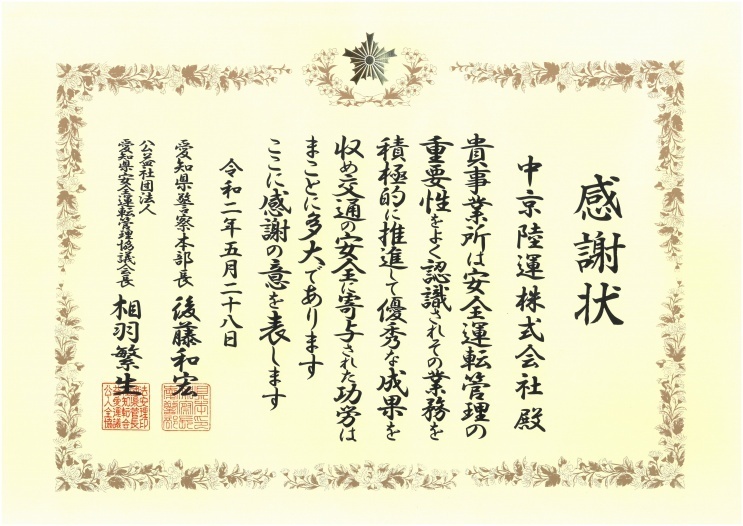 感謝状
中京陸運株式会社殿
貴事業所は安全運転管理の
重要性をよく認識されその業務を
積極的に推進して優秀な成果を
収め交通の安全に寄与された功労は
まことに多大であります
ここに感謝の意を表します
令和二年五月二十八日
愛知県警察本部長 後藤和宏
公益社団法人
愛知県安全運転管理協議会長 相羽繁生